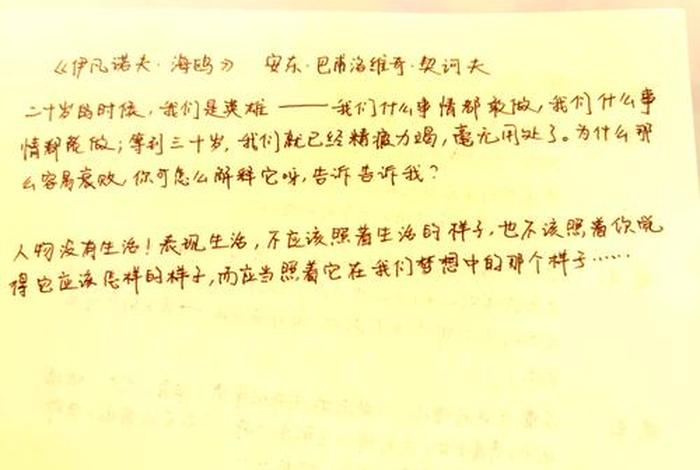 《伊凡诺夫·海鸥》 安东·巴甫洛维奇·契诃夫
二十岁的时候，我们是英雄——我们什么事情都敢做，我们什么事
情都能做；等到三十岁，我们就已经精疲力竭，毫无用处了。为什么那
么容易衰败，你可怎么解释它呀，告诉告诉我？
人物没有生活！表现生活，不应该照着生活的样子，也不该照着你觉
得它应该怎样的样子，而应当照着它在我们梦想中的那个样子……